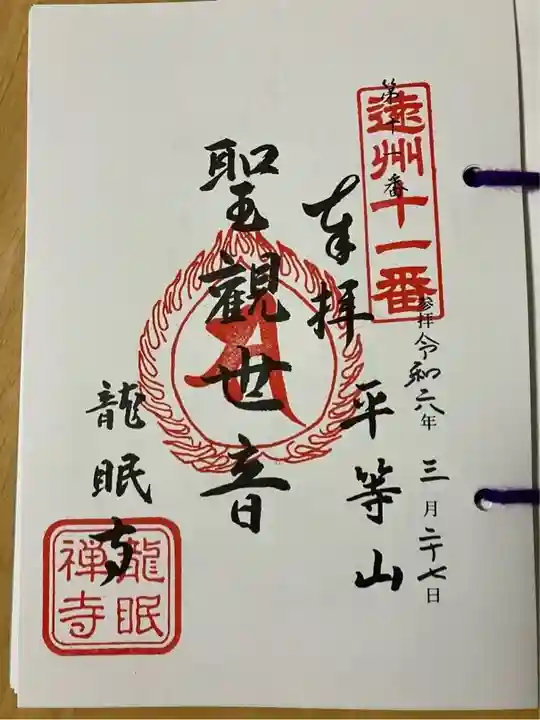 遠州十一番
第十一番
参拝令和六年三月二十七日
奉拝
平等山
聖觀世音
龍眠寺
龍眠
禅寺